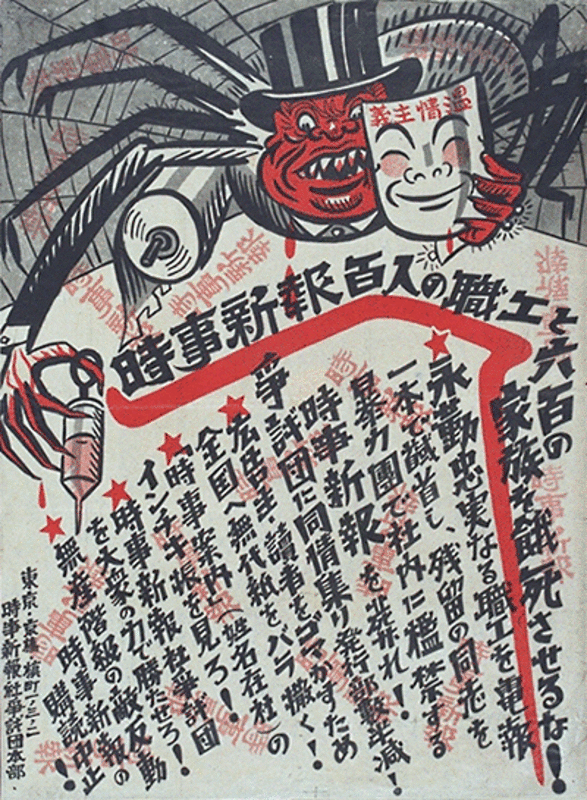 溫情主義
時事新報百人の職工と六百の
家族を餓死させるな!
永勤忠実なる職工を電報
一本で馘首し、残留の同志を
暴力團で社内に檻禁する
時事新報を葬れ!
爭議団に同情集り発行部数半減!
広告主・讀者をゴマかすため
全国へ無代紙をバラ撒く!
「時事案内」(姓名在社)の
インチキ振を見ろ!
時事新報社爭議団
を大衆の力で勝たせろ!
無産階級の敵反動
時事新報の
購読中止!
東京・京橋・槇町一ノ三ノ二
時事新報社爭議団本部・